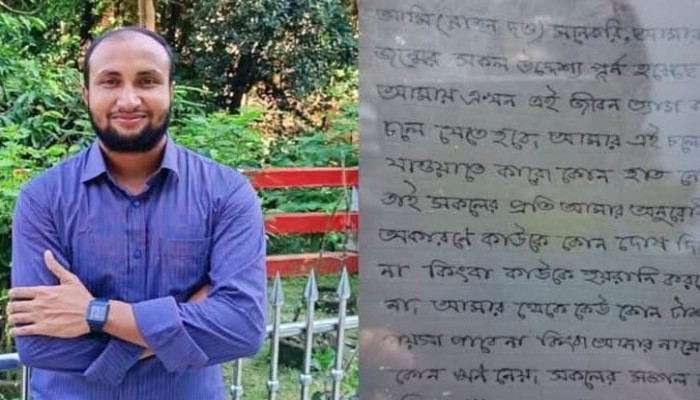 আমি (রাহুল দত্ত) মনেকরি, আমার
জন্মের সকল উদ্দেশ্য পূর্ন হয়েছে
আমায় এখন এই জীবন ত্যাগ
চলে যেতে হবে, আমার এই চলে
যাওয়াতে কারো কোন হাত নে
তাই সকলের প্রতি আমার অনুরো
অকারণে কাউকে কোন দোষ দি
না কিংবা কাউকে হয়রানি কর
না, আমার থেকে কেউ কোন টাকা
পয়সা পাবে না কিংবা আমার নামে
কোন ঋন নেয়, সকলের